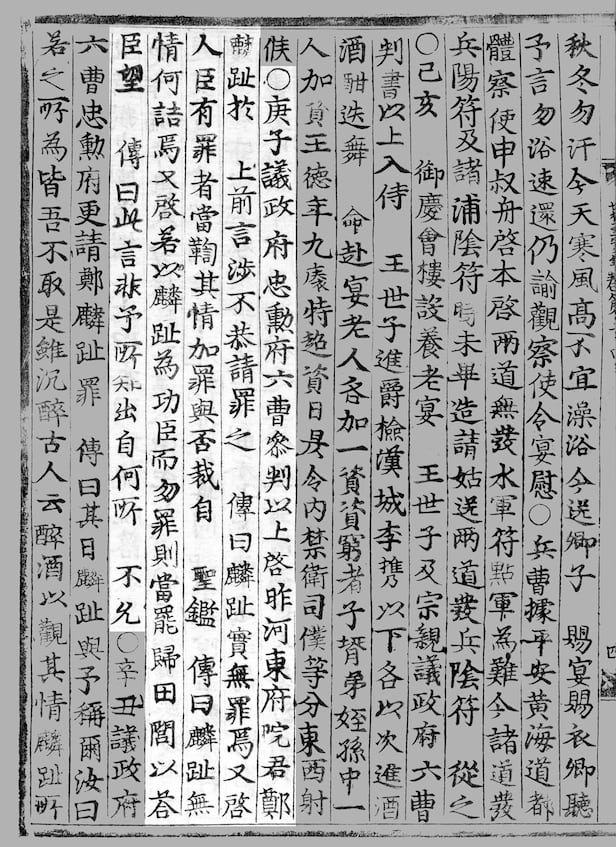 秋冬勿汗今天寒風高不宜澡浴今送卿子 賜宴賜衣卿聽
予言勿浴速還仍諭觀察使令宴慰○兵曹據平安黃海道都
體察使申叔舟啓本啓兩道無發水軍符點軍為難今諸道發
兵陽符及諸浦陰符時未畢造請姑送兩道發兵陰符 從之
○己亥 御慶會樓設養老宴 王世子及宗親議政府六曹
判書以上入侍 王世子進爵檢漢城李攜以下各以次進酒
酒酣迭舞 命赴宴老人各加一資資窮者子壻弟姪孫中一
人加資王德年九 特超資日昃令內禁衛司僕等分東西射
侯○庚子議政府忠勳府六曹參判以上啓昨河東府院君鄭
麟趾於 上前言涉不恭請罪之 傳曰麟趾實無罪焉又啓
人臣有罪者當鞫其情加罪與否裁自 聖鑑 傳曰麟趾無
情何詰焉又啓若以麟趾為功臣而勿罪則當罷歸田閭以答
臣望 傳曰此言非予所知出自何所 不允○辛丑議政府
六曹忠勳府更請鄭麟趾罪 傳曰其日麟趾與予稱爾汝曰
若之所為皆吾不取是雖沉醉古人云醉酒以觀其情麟趾所